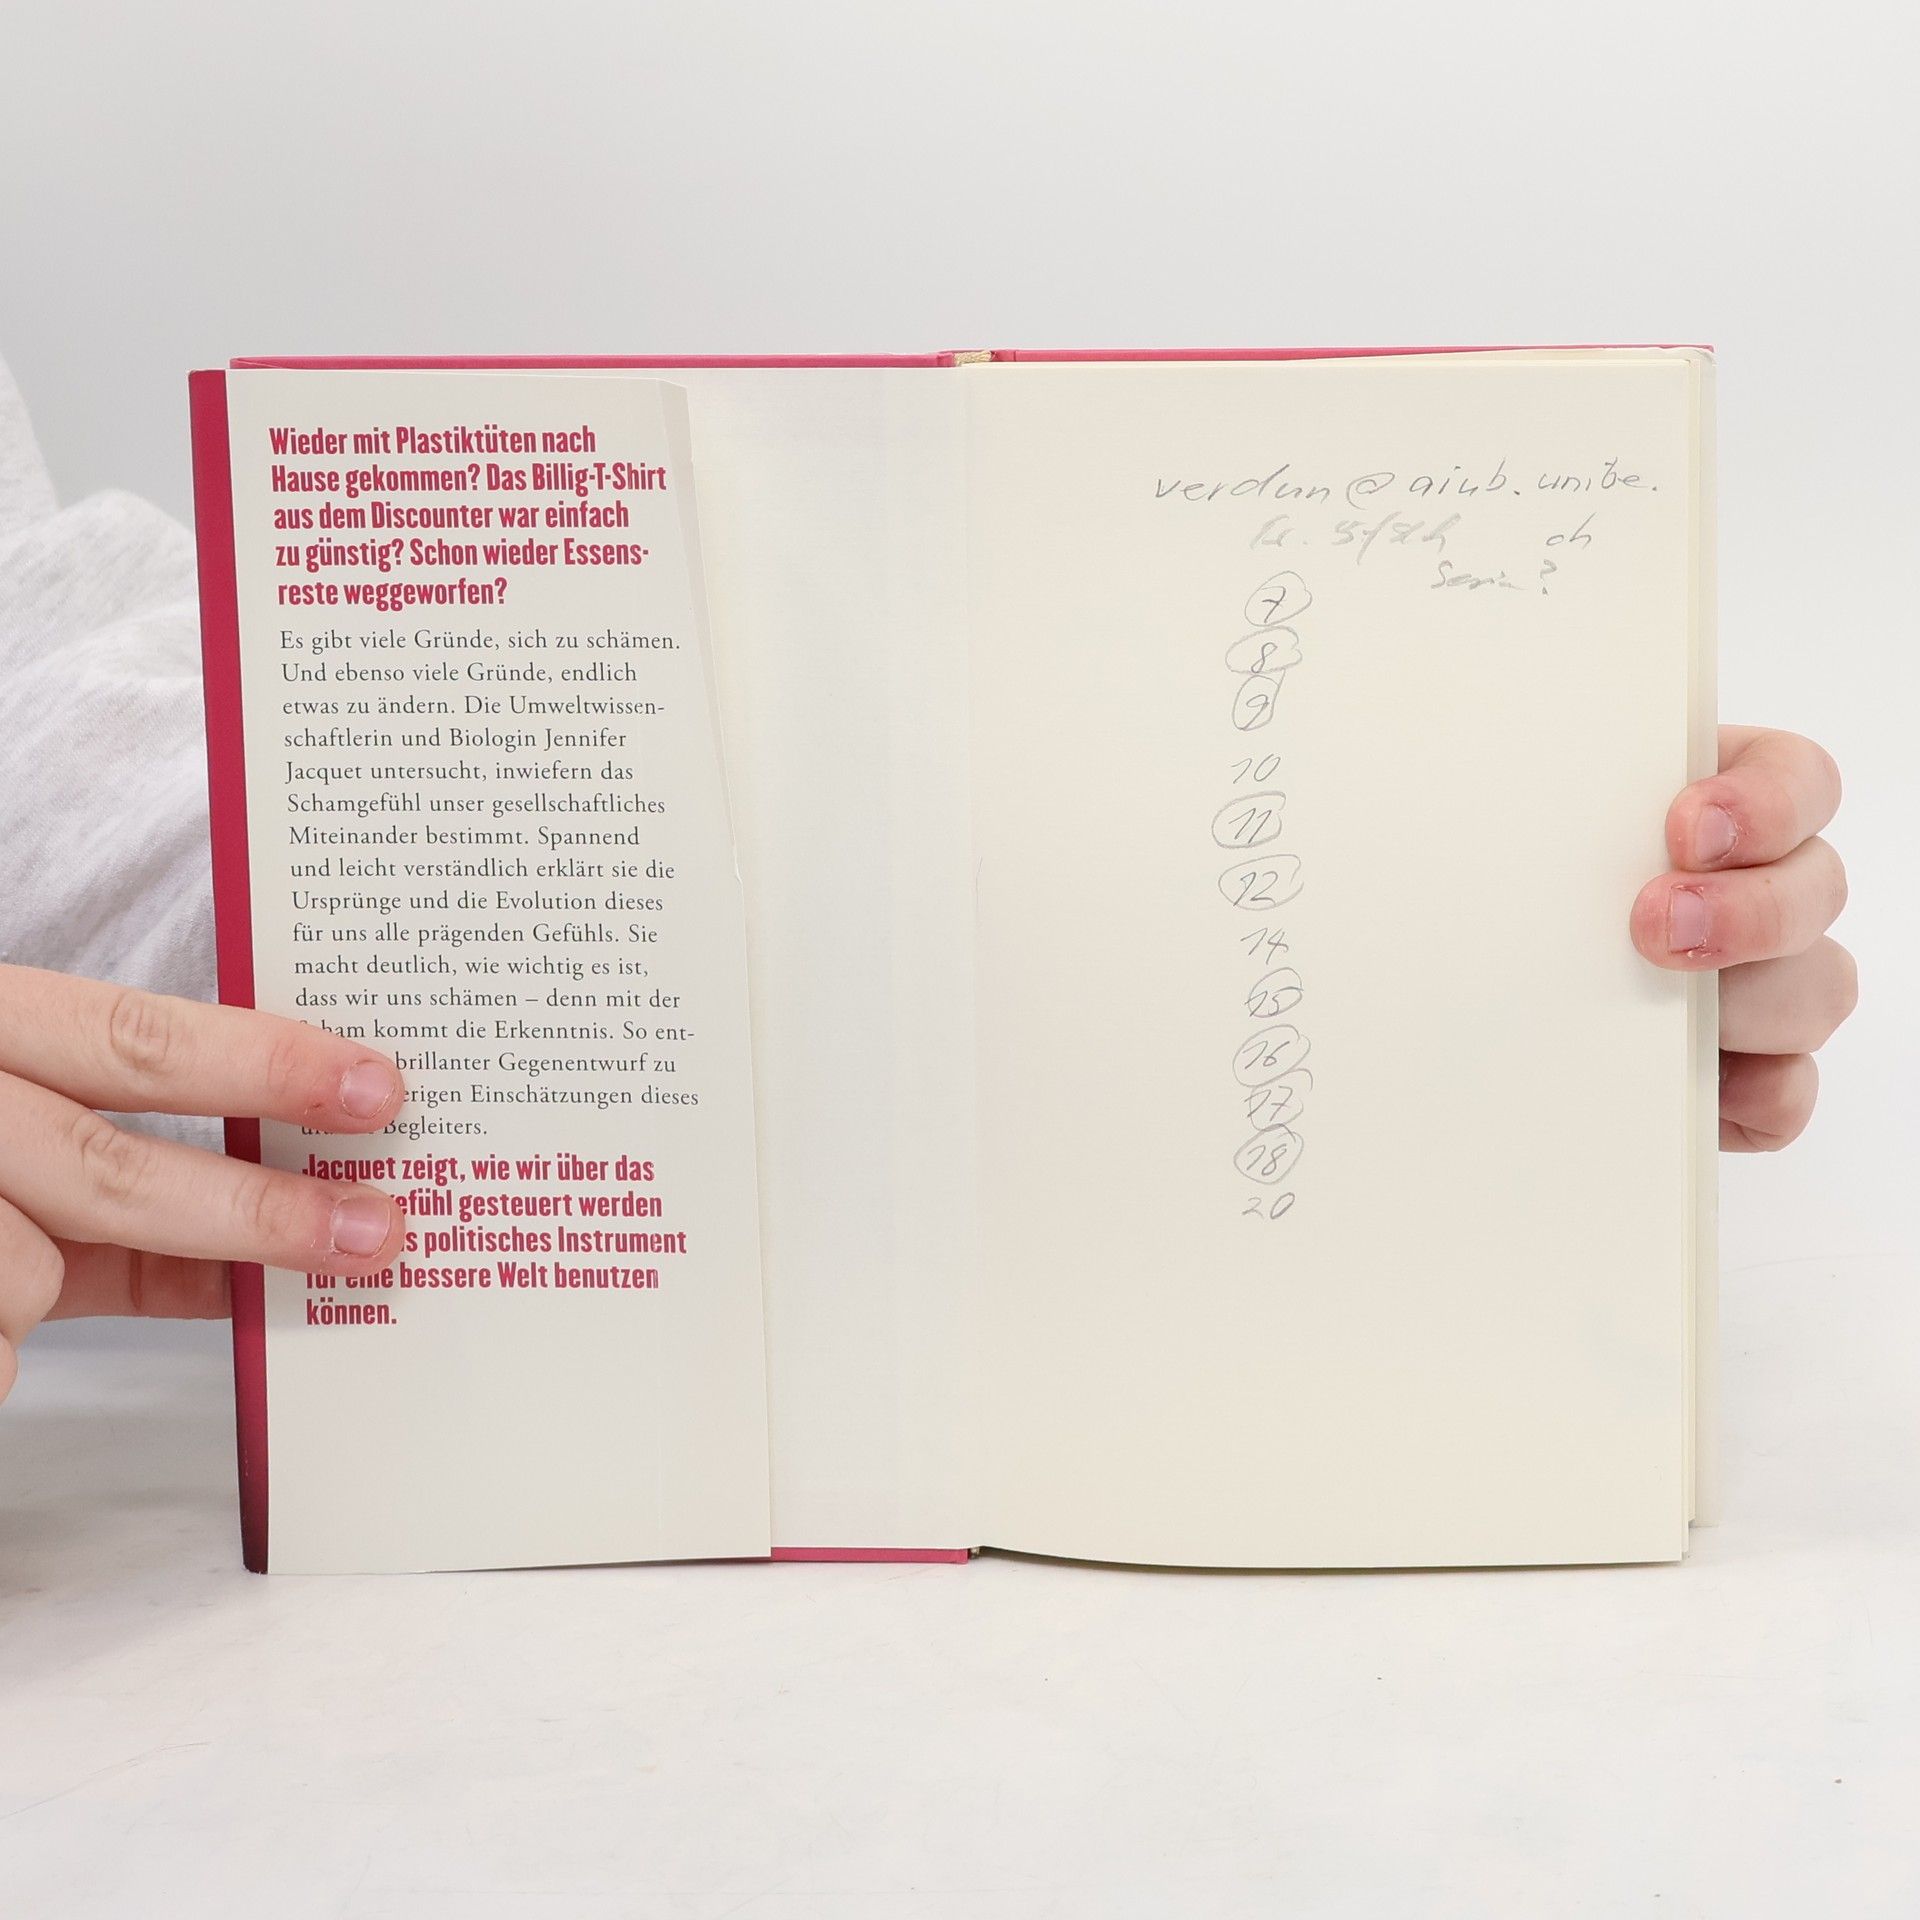 Wieder mit Plastiktüten nach
Hause gekommen? Das Billig-T-Shirt
aus dem Discounter war einfach
zu günstig? Schon wieder Essens-
reste weggeworfen?
Es gibt viele Gründe, sich zu schämen.
Und ebenso viele Gründe, endlich
etwas zu ändern. Die Umweltwissen-
schaftlerin und Biologin Jennifer
Jacquet untersucht, inwiefern das
Schamgefühl unser gesellschaftliches
Miteinander bestimmt. Spannend
und leicht verständlich erklärt sie die
Ursprünge und die Evolution dieses
für uns alle prägenden Gefühls. Sie
macht deutlich, wie wichtig es ist,
dass wir uns schämen – denn mit der
Scham kommt die Erkenntnis. So ent-
brillanter Gegenentwurf zu
erigen Einschätzungen dieses
Begleiters.
Jacquet zeigt, wie wir über das
efühl gesteuert werden
s politisches Instrument
für eine bessere Welt benutzen
können.
verdun@aiub.unibe.
ch
7
8
9
10
11
12
14
15
16
17
18
20